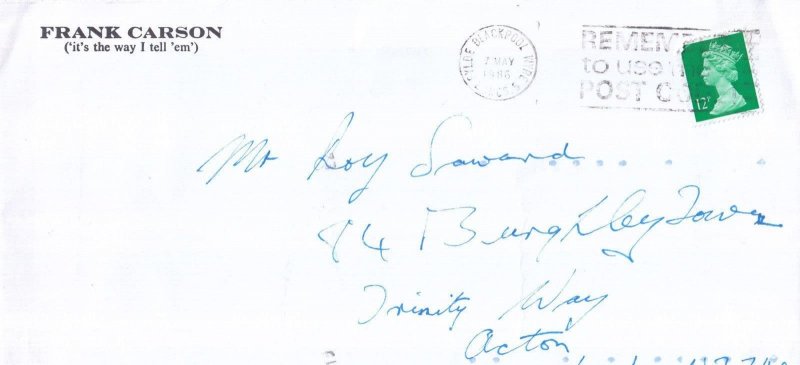 FRANK CARSON
('it's the way I tell 'em')
FYLDE BLACKPOOL WYRE
7 MAY
1986
REMEM
to use
POST CO
12P
Mr Roy Saward
Burghley Tower
Trinity Way
Acton